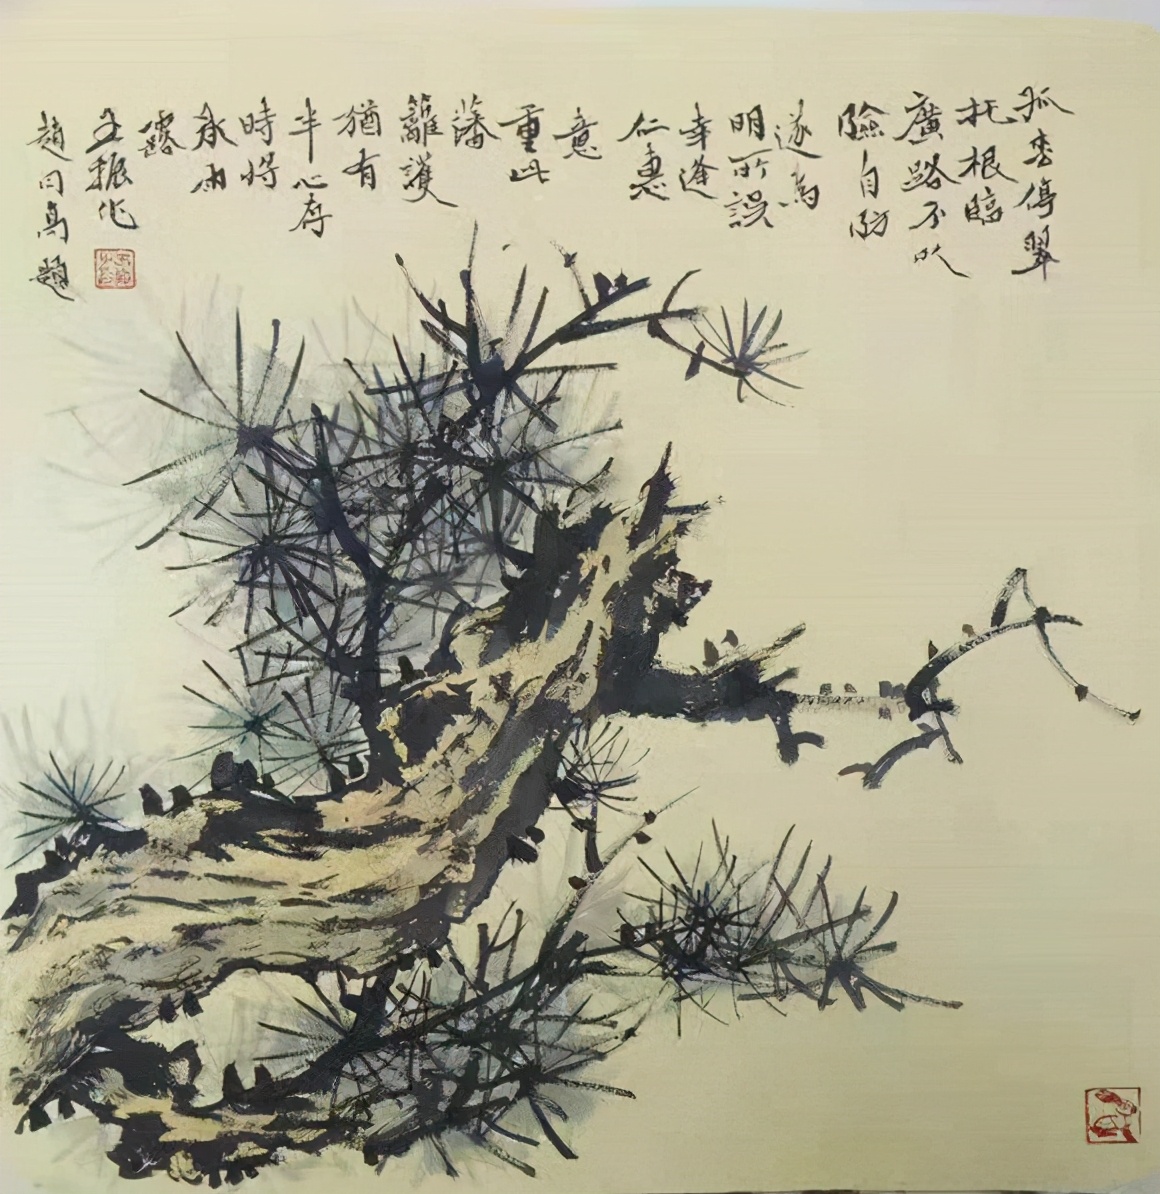 孤枩停翠
托根臨
廣路不以
險自防
遂為
明所誤
幸逢
仁惠
意
重此
藩
籬護
猶有
半心存
時將
承雨
露
王振作
趙 題